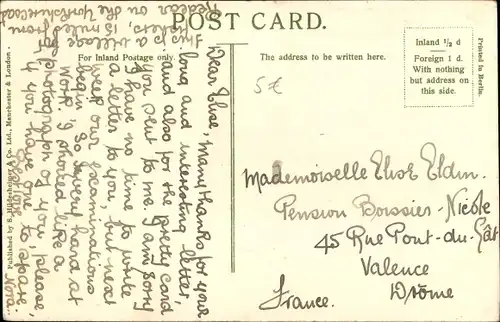 POST CARD.
For Inland Postage only.
The address to be written here.
Inland ½ d
Foreign 1 d.
With nothing
but address on
this side.
Printed in Berlin.
Published by S. Hildesheimer & Co. Ltd., Manchester & London.
5€
Dear Elise, many thanks for your
long and interesting letter,
and also for the pretty card
you sent to me. I am sorry
I have no time to write
a letter to you, but next
week our examinations
begin, so very hard at
work. I should like a
photograph of you, please,
if you have one to spare.
Nora.
This is a village
miles from
Redcar on the Yorkshire coast
Mademoiselle Elise Eldin.
Pension Boissier-Nicole
45 Rue Pont-du-Gât
Valence
Drôme
France.